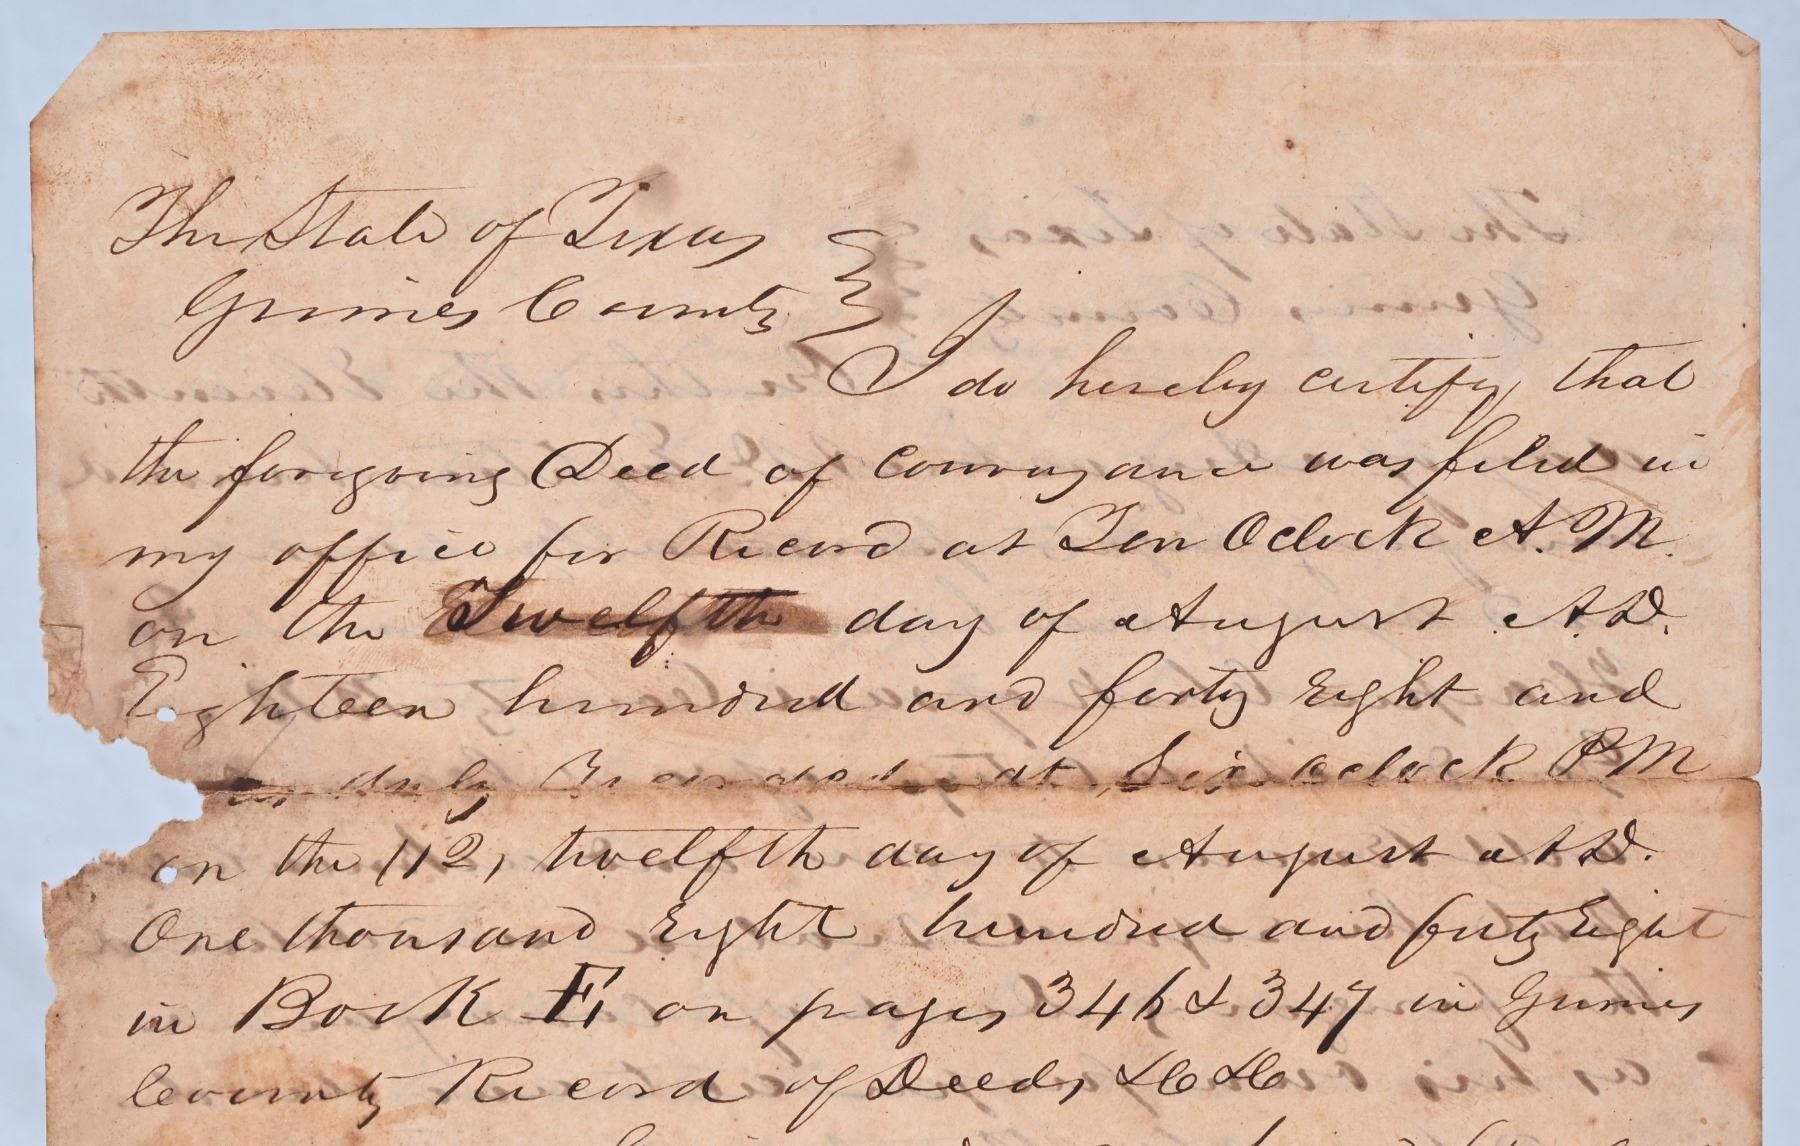 The State of Texas
Grimes County
I do hereby certify that
the foregoing Deed of conveyance was filed in
my office for Record at Ten Oclock A.M.
on the Twelfth day of August A.D.
Eighteen hundred and forty Eight and
duly Recorded at Six oclock P.M
on the (12) twelfth day of August A.D.
One thousand Eight hundred and forty Eight
in Book E on pages 346 & 347 in Grimes
County Record of Deeds &c &c